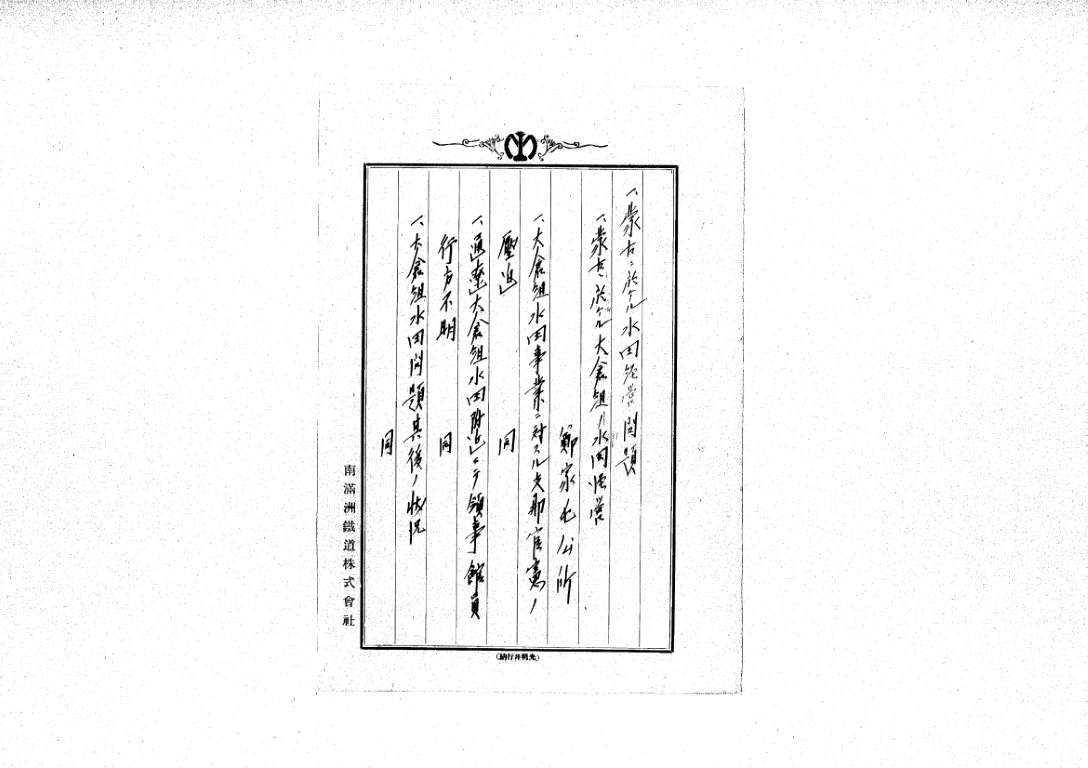 一、蒙古ニ於ケル水田経営問題
一、蒙古ニ於ケル大倉組ノ水田経営
鄭家屯公所
一、大倉組水田事業ニ対スル支那官憲ノ
圧迫
同
一、通遼大倉組水田附近ニテ領事館員
行方不明
同
一、大倉組水田問題其後ノ状況
同
南滿洲鐵道株式會社